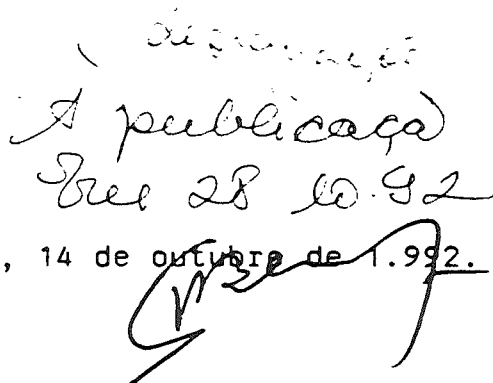 À publicaçã
Em 28 10.92
, 14 de outubro de 1.992.